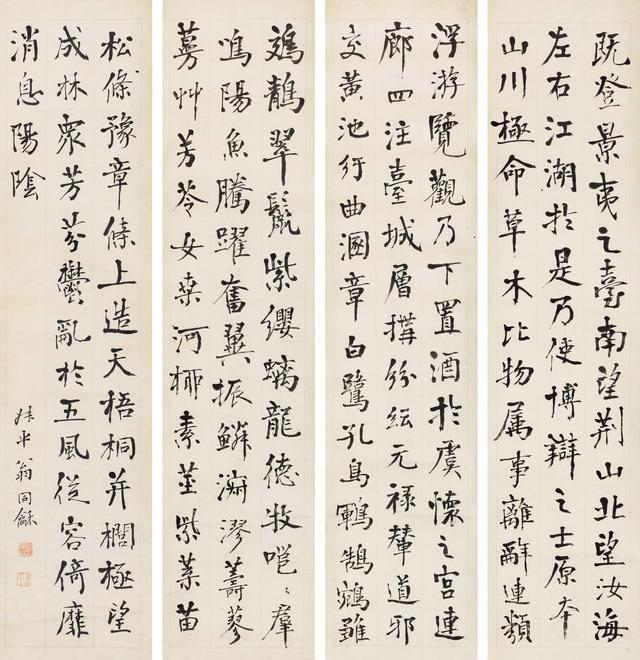 既登景夷之臺南望荆山北望汝海
左右江湖於是乃使博辯之士原本
山川極命草木比物属事離辭連類
浮游覽觀乃下置酒於虞懷之宫連
廊四注臺城層搆紛紜元禄輦道邪
交黄池行曲溷章白鷺孔鳥鶤鵠鵷雛
鵁鶄翠鬣紫纓螭龍德牧嗈〻羣
鳴陽魚騰躍奮翼振鱗漃漻薵蓼
蔓艸芳苓女桑河柳素莖紫葉苗
松條豫章條上造天梧桐并櫚極望
成林衆芳芬鬱亂於五風從容倚靡
消息陽陰
叔平翁同龢